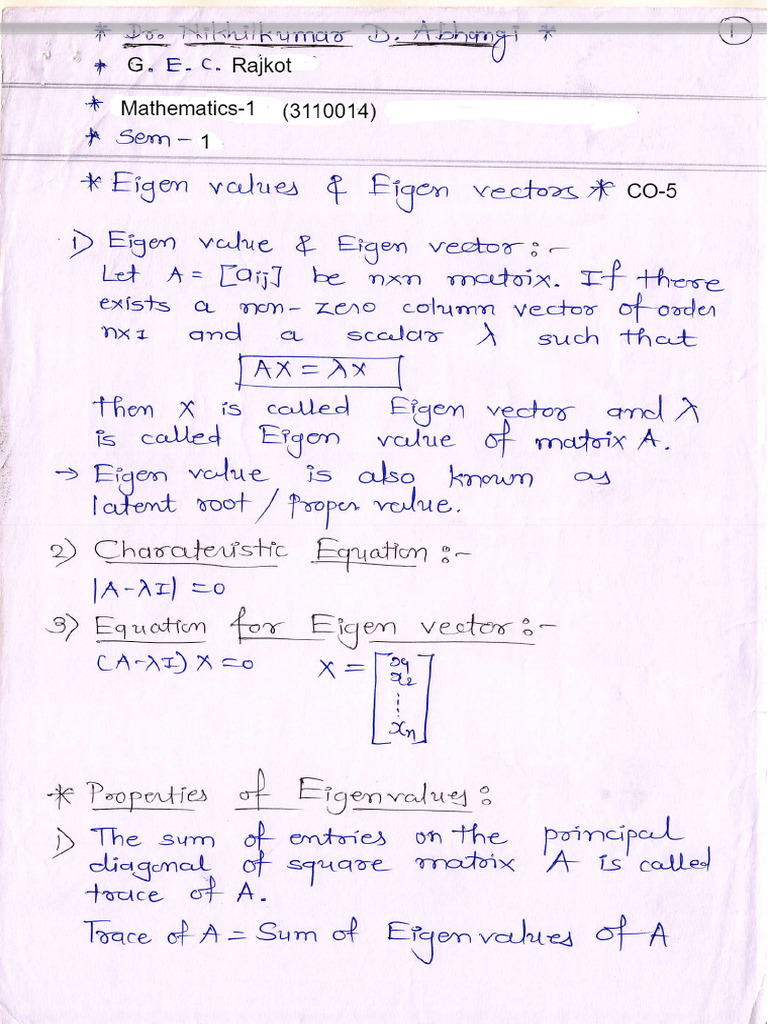 * Dr. Nikhilkumar D. Abhangi * 1
* G. E. C. Rajkot
* Mathematics-1 (3110014)
* Sem - 1
* Eigen values & Eigen vectors * CO-5
1) Eigen value & Eigen vector :-
Let A = [aij] be nxn matrix. If there
exists a non-zero column vector of order
nx1 and a scalar λ such that
AX = λX
then X is called Eigen vector and λ
is called Eigen value of matrix A.
→ Eigen value is also known as
latent root / proper value.
2) Charateristic Equation :-
|A-λI| = 0
3) Equation for Eigen vector :-
(A-λI) X = 0 X = [x1 x2 ⋮ xn]
* Properties of Eigen values :
1) The sum of entries on the principal
diagonal of square matrix A is called
trace of A.
Trace of A = Sum of Eigen values of A